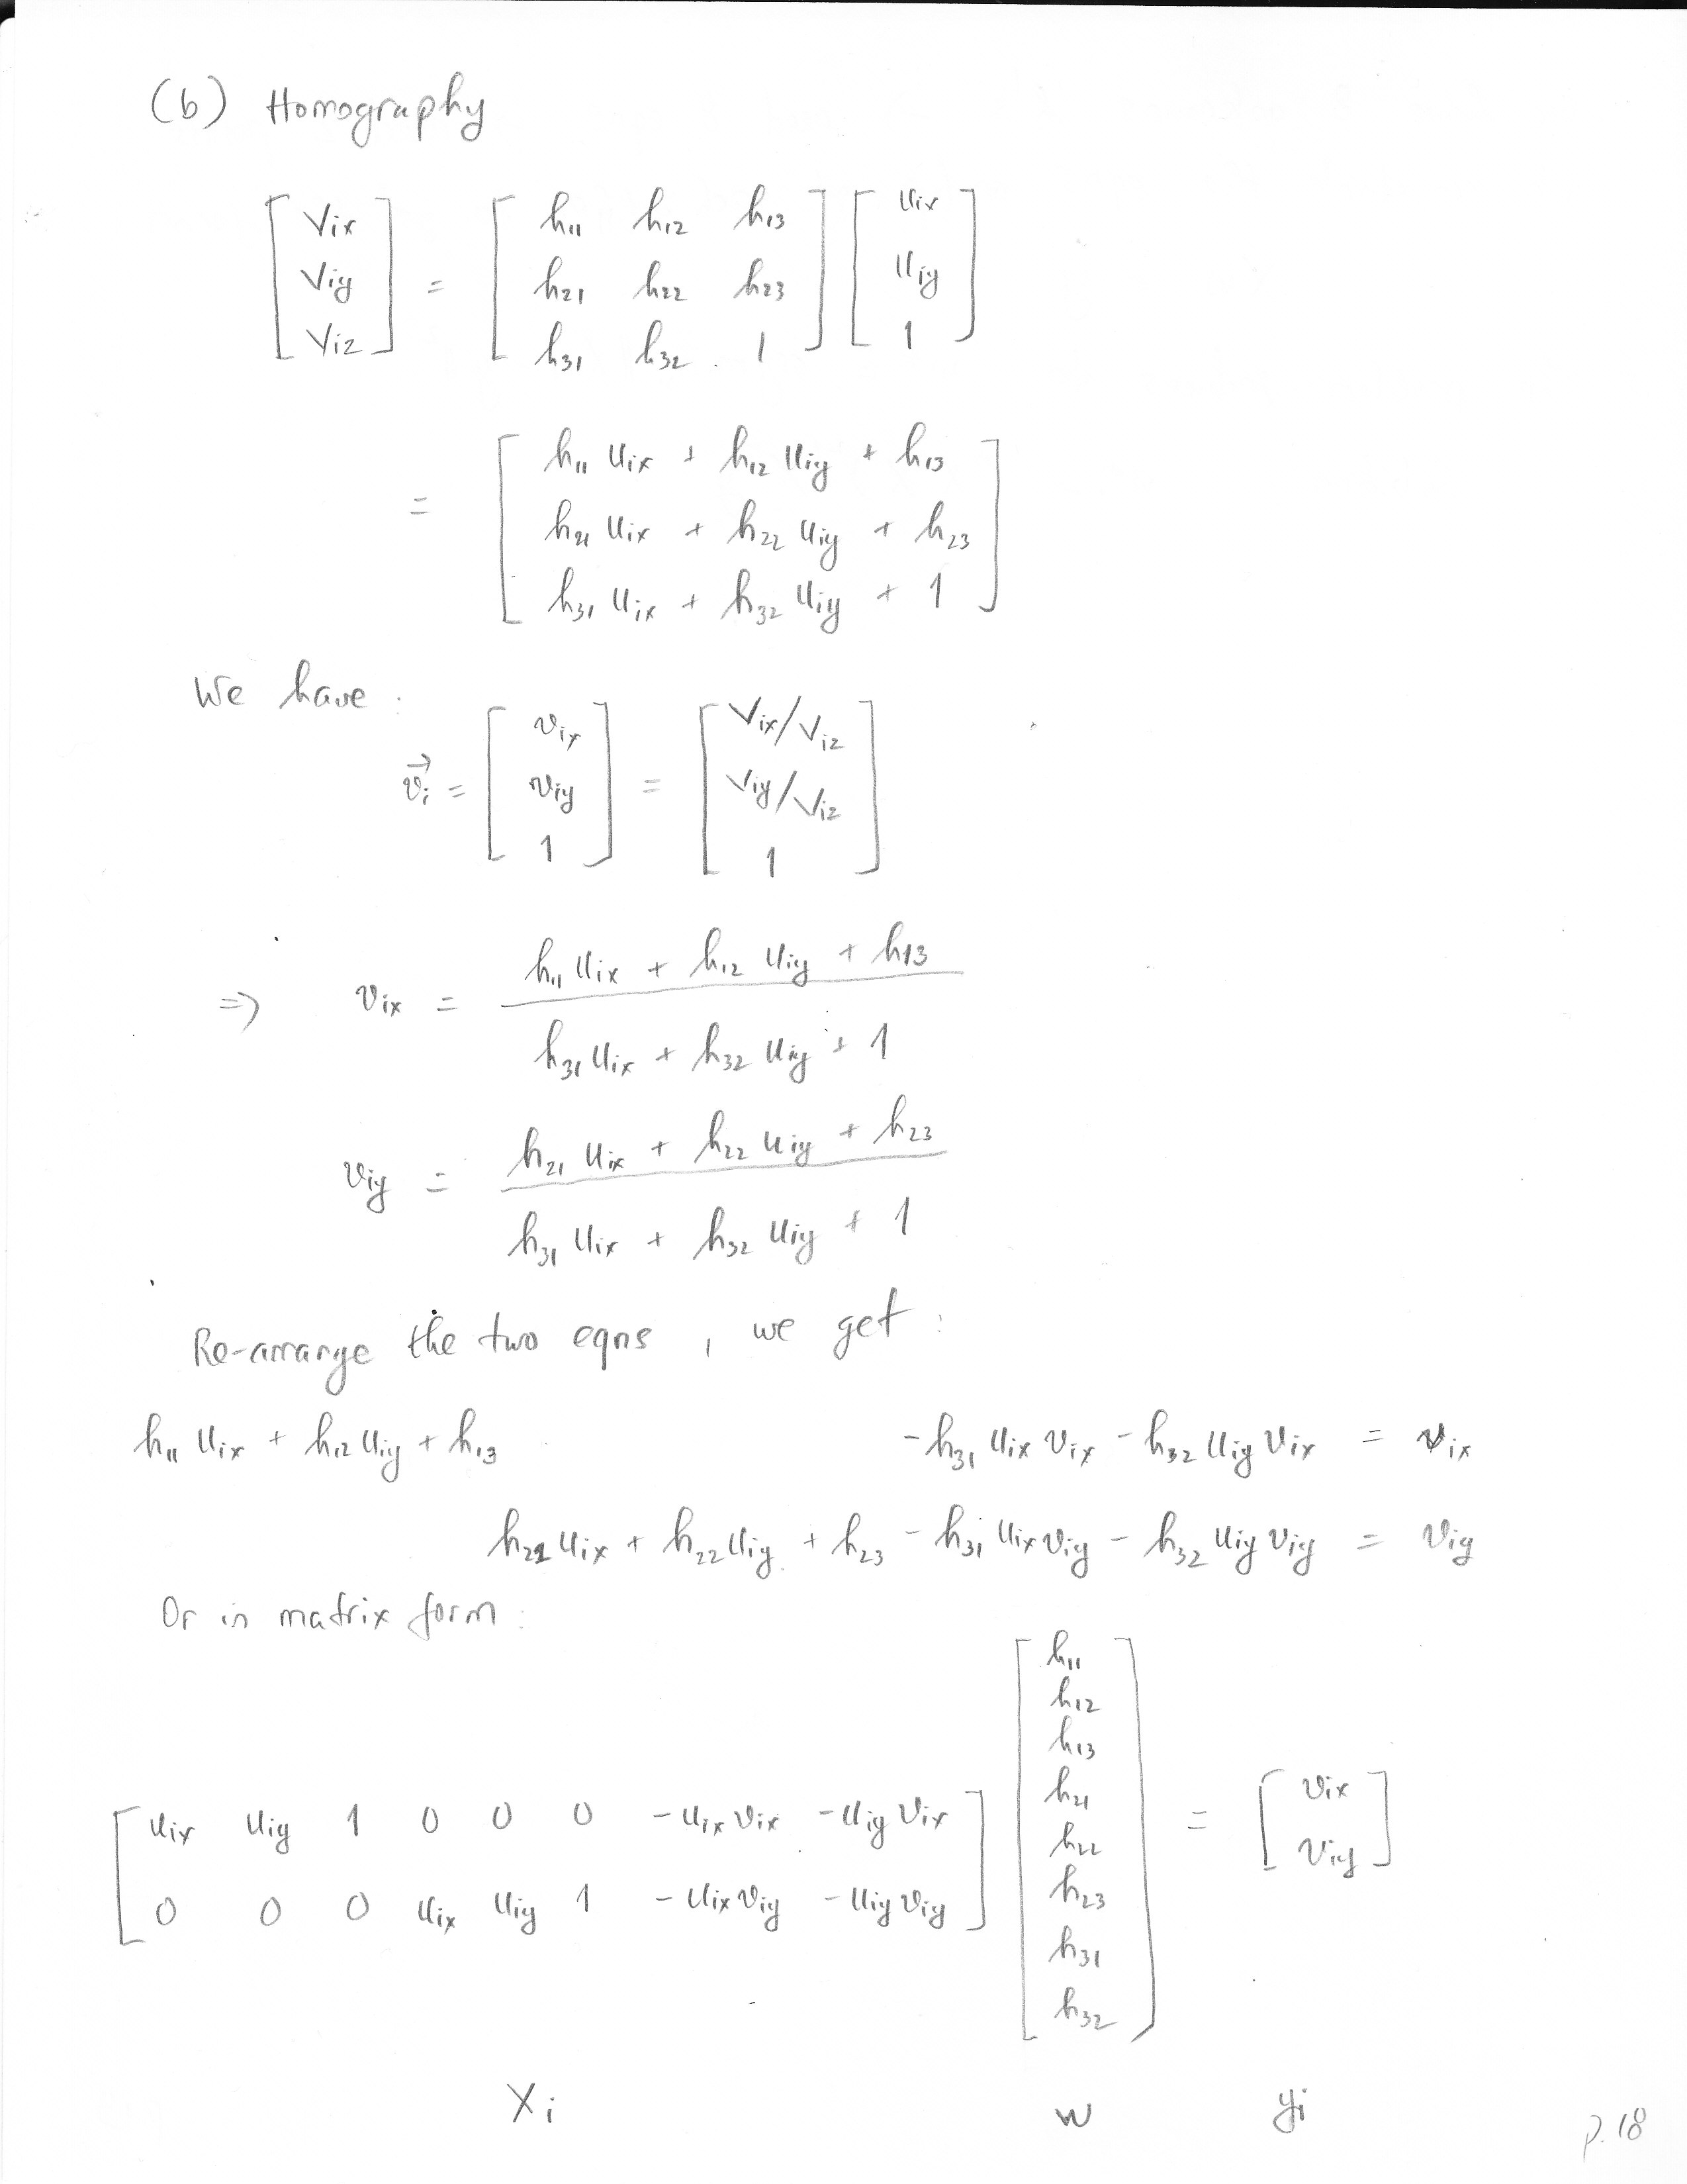 (b) Homography
[ Vix ; Viy ; Viz ] = [ h11 h12 h13 ; h21 h22 h23 ; h31 h32 1 ] [ uix ; uiy ; 1 ]
= [ h11 uix + h12 uiy + h13 ; h21 uix + h22 uiy + h23 ; h31 uix + h32 uiy + 1 ]
We have :
v⃗i = [ vix ; viy ; 1 ] = [ Vix/Viz ; Viy/Viz ; 1 ]
=> vix = (h11 uix + h12 uiy + h13) / (h31 uix + h32 uiy + 1)
viy = (h21 uix + h22 uiy + h23) / (h31 uix + h32 uiy + 1)
Re-arrange the two eqns , we get :
h11 uix + h12 uiy + h13 - h31 uix vix - h32 uiy vix = vix
h21 uix + h22 uiy + h23 - h31 uix viy - h32 uiy viy = viy
Or in matrix form :
[ uix uiy 1 0 0 0 -uix vix -uiy vix ; 0 0 0 uix uiy 1 -uix viy -uiy viy ] [ h11 ; h12 ; h13 ; h21 ; h22 ; h23 ; h31 ; h32 ] = [ vix ; viy ]
Xi w yi
p.18